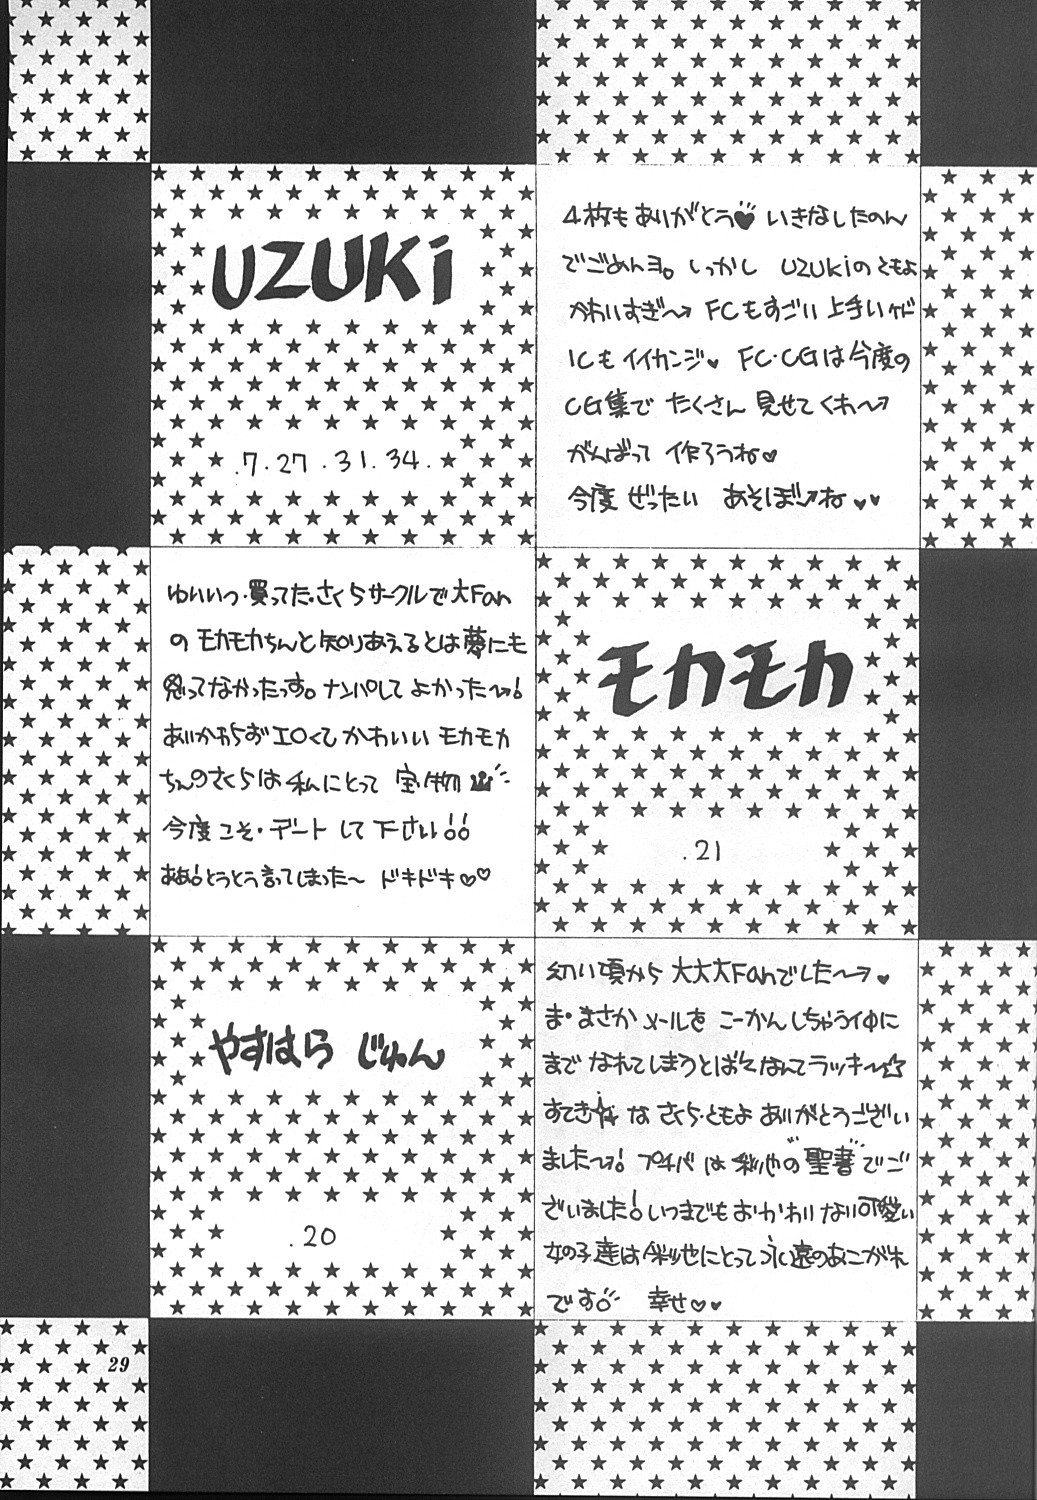 UZUKi
.7.27.31.34.
4枚もありがとう♥ いきなしたのん
でごめんヨ。しっかし UZUKiのともよ
かわいすぎ〜 FCもすごい上手いケド
ICもイイカンジ♥ FC・CGは今度の
CG集で たくさん 見せてくれ〜
がんばって 作ろうね♥
今度 ぜったい あそぼーね ♥♥
ゆいいつ・買ってた・さくらサークルで大Fan
の モカモカちんと知りあえるとは夢にも
思ってなかったっす。ナンパして よかった〜!
あいかわらずエロくて かわいい モカモカ
ちんのさくらは 私にとって 宝物
今度こそ・デート して 下さい!!
ああ!とうとう言ってしまった〜 ドキドキ♡♡
モカモカ
.21
やすはら じゅん
.20
幼い頃から 大大大Fanでした〜♥
ま・まさか メールを こーかんしちゃうイ中に
まで なれてしまうとは なんてラッキ〜☆
すてき な さくら・ともよ ありがとうござい
ました〜! プチバは 彩也の"聖書"でご
ざいました!いつまでもおかわりない可愛い
女の子達は 彩也にとって永遠のあこがれ
です 幸せ♡♥
29